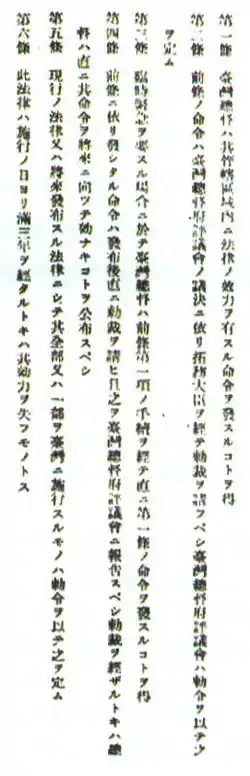 第一條　臺灣總督ハ其管轄區域內ニ法律ノ效力ヲ有スル命令ヲ發スルコトヲ得
第二條　前條ノ命令ハ臺灣總督府評議會ノ議決ニ依リ拓務大臣ヲ經テ勅裁ヲ請フベシ臺灣總督府評議會ハ勅令ヲ以テ之
ヲ定ム
第三條　臨時緊急ヲ要スル場合ニ於テ臺灣總督ハ前條第一項ノ手續ヲ經テ直ニ第一條ノ命令ヲ發スルコトヲ得
第四條　前條ニ依リ發シタル命令ハ發布後直ニ勅裁ヲ請ヒ且之ヲ臺灣總督府評議會ニ報告スベシ勅裁ヲ經ザルトキハ總
督ハ直ニ其命令ヲ將來ニ向ツテ効ナキコトヲ公布スベシ
第五條　現行ノ法律又ハ將來發布スル法律ニシテ其全部又ハ一部ヲ臺灣ニ施行スルモノハ勅令ヲ以テ之ヲ定ム
第六條　此法律ハ施行ノ日ヨリ滿三年ヲ經タルトキハ其効力ヲ失フモノトス